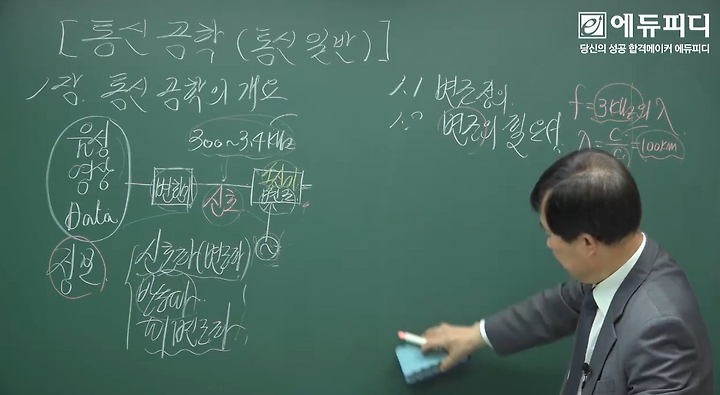 에듀피디
당신의 성공 합격메이커 에듀피디
[통신 공학 (통신 일반)]
1장. 통신 공학의 개요
음성
영상
Data
정보
300~3.4kHz
변환기
신호
변조
~
신호파(변조파)
반송파
피변조파
1.1 변조 정의.
1.2 변조의 필요성.
f = 3kHz의 λ
λ = C/f = 100km